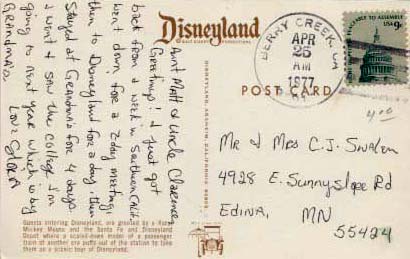 Disneyland
© WALT DISNEY PRODUCTIONS
Aunt Matt & Uncle Clarence,
Greetings! I just got
back from a week in Southern Calif.
Went down for a 2 day meeting
then to Disneyland for a day, then
Stayed at Grandma's for 4 days.
I went & saw the college I'm
going to next year which is by
Grandma's
Love
Guests entering Disneyland, are greeted by a Floral
Mickey Mouse and the Santa Fe and Disneyland
Depot where a scaled-down model of a passenger
train of another era puffs out of the station to take
them on a scenic tour of Disneyland.
DISNEYLAND, ANAHEIM, CALIFORNIA
BERRY CREEK, CA
APR
25
AM
1977
USA 9c
POST CARD
4.00
Mr & Mrs C.J. Swalen
4928 E. Sunnyslope Rd
Edina, MN
55424